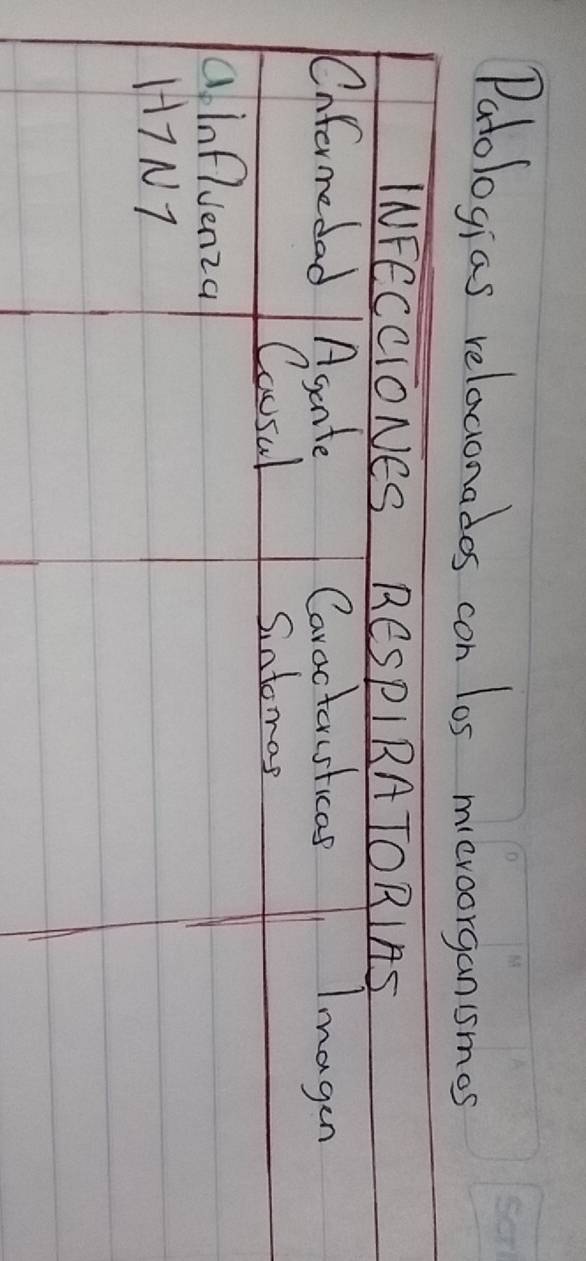 Patologías relacionados con los microorganismos
INFECCIONES RESPIRATORIAS
Enfermedad
Agente
Causal
Caracteristicas
Sintomas
Imagen
a. influenza
H1N1